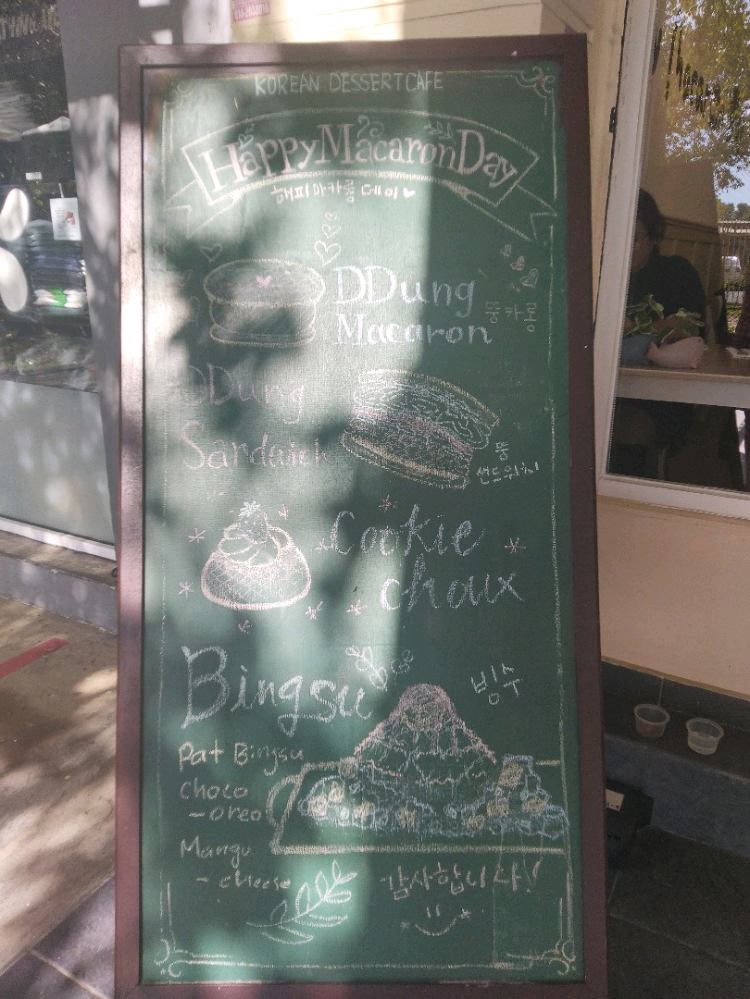 KOREAN DESSERT CAFE
Happy Macaron Day
해피마카롱 데이♥
DDung
Macaron
뚱카롱
DDung
Sandwich
뚱
샌드위치
Cookie
choux
Bingsu
빙수
Pat Bingsu
Choco
-oreo
Mango
- cheese
감사합니다!